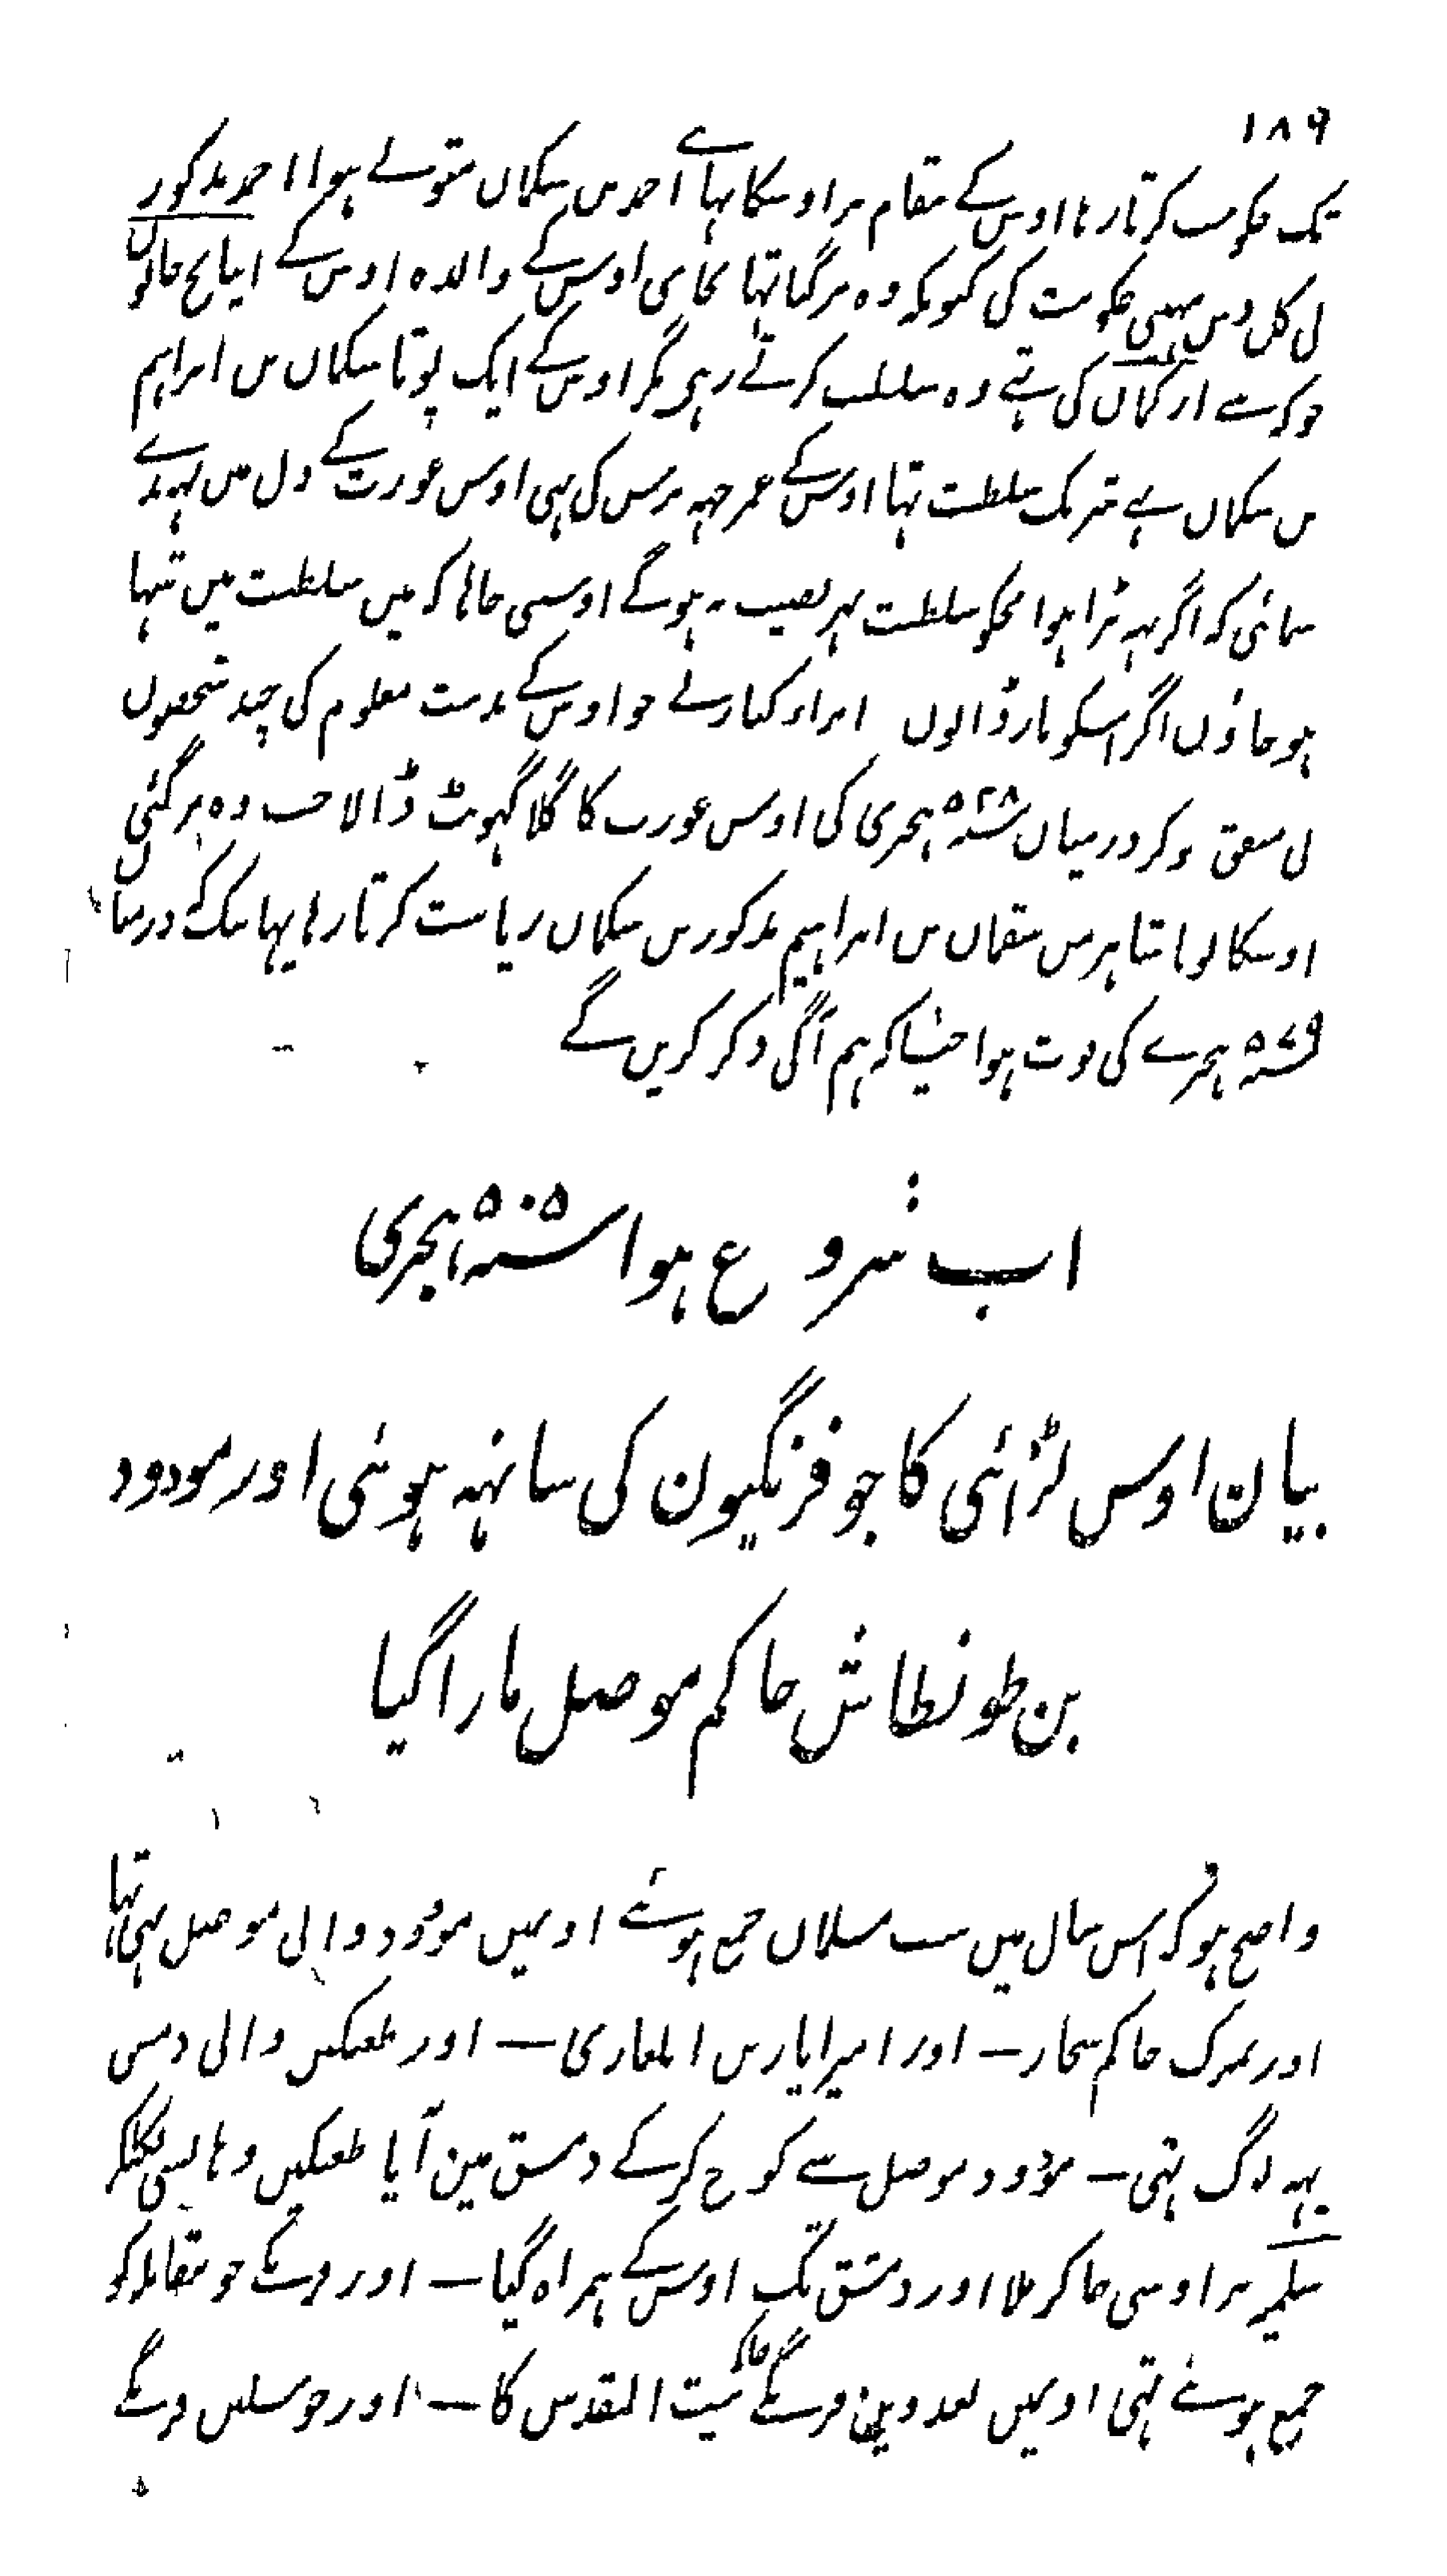 ۱۸۹
تک حکومت کرتا رہا اوس کے مقام پر اوسکا بہائے احمد بن سکمان متولے ہوا احمد مذکور
ل کل دس مہینی حکومت کی کیونکہ وہ مر گیا تہا بجای اوس کے والدہ اوس کے اینانج خاتون
جو کہ سے ارکمان کی تہے وہ سلطنت کرتے رہی مگر اوس کے ایک پوتا سکمان بن ابراہیم
بن سکمان سے شریک سلطنت تہا اوس کے عمر چہہ برس کی تہی اوس عورت کے دل میں یہہ بدے
سمائی کہ اگر یہہ بڑا ہوا مجکو سلطنت پہر نصیب نہ ہوگے اوسی چاہا کہ میں سلطنت میں تنہا
ہو جاؤں اگر اسکو مار ڈالوں امراء کبار نے جو اوس کے بدنیت معلوم کی چند شخصوں
ل متفق ہوکر درمیان سنہ ۵۲۸ ہجری کی اوس عورت کا گلا گہونٹ ڈالا جب وہ مر گئی
اوسکا پوتا شاہرمن سقمان بن ابراہیم مذکور بن سکمان ریاست کرتا رہا یہانتک کے درمیان
سنہ ۵۷۹ ہجرے کی فوت ہوا جیسا کہ ہم آگی ذکر کریں گے
اب شروع ہوا سنہ ۵۰۵ ہجری
بیان اوس لڑائی کا جو فرنگیون کی ساتہہ ہوئی اور مودود
بن طونطاش حاکم موصل مارا گیا
واضح ہو کہ اس سال میں سب مسلمان جمع ہوئے اونمیں مودود والی موصل بہی تہا
اور تمیرک حاکم سنجار — اور امیر ایاز بن ایلغازی — اور طغتکین والی دمشق
یہہ لوگ تہی — مودود موصل سے کوچ کرکے دمشق مین آیا طغتکین وہانسی نکلکر
سلمیہ پر اوسی جا کر ملا اور دمشق تک اوس کے ہمراہ گیا — اور فرنگے جو مقابلہ کو
جمع ہوئے تہی اونمیں بغدوین فرنگے حاکم بیت المقدس کا — اور جوسلین فرنگے